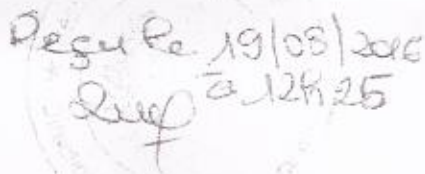 Reçu le 19/08/2016
à 12h25